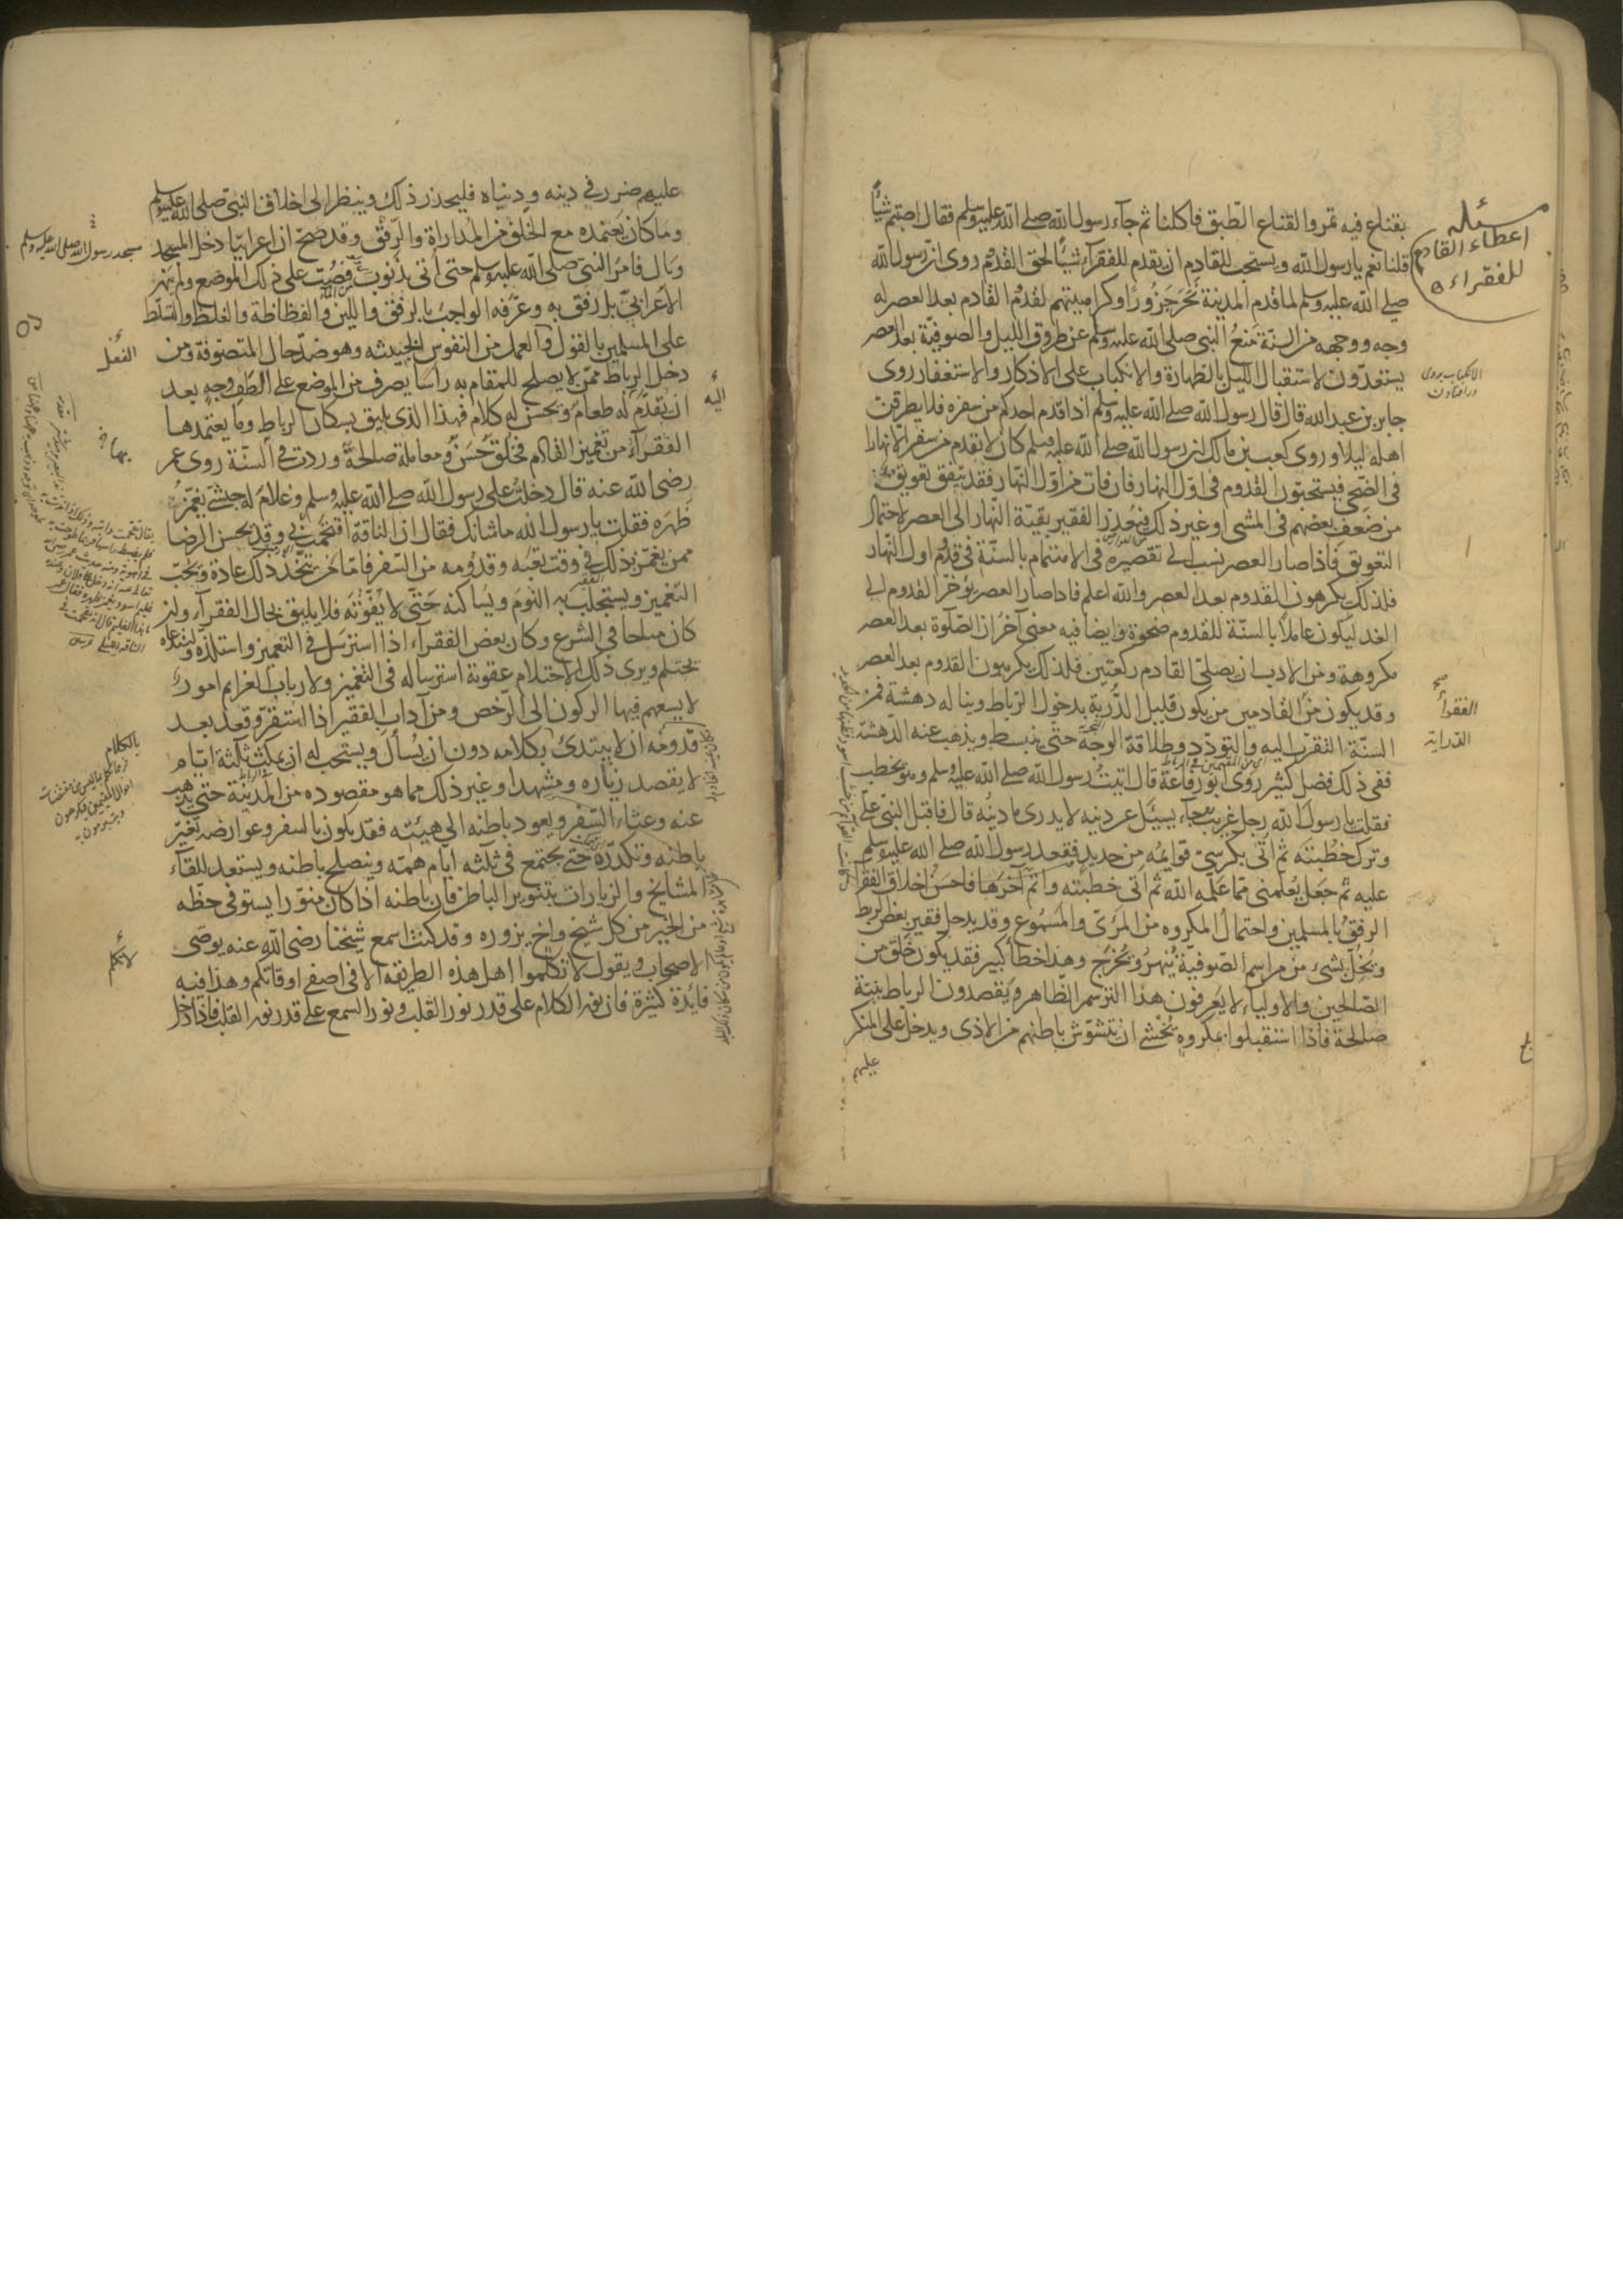 بقناع فيه تمر والقناع الطبق فاكلنا ثم جاء رسول الله صلى الله عليه وسلم فقال اصبتم شيأ
قلنا نعم يا رسول الله ويستحب للقادم ان يقدم للفقراء شيأ لحق القدوم روى ان رسول الله
صلى الله عليه وسلم لما قدم المدينة نحر جزورا وكراهيتهم لقدوم القادم بعد العصر له
وجه ووجهه من السنة منع النبي صلى الله عليه وسلم عن طروق الليل والصوفية بعد العصر
يستعدون لاستقبال الليل بالطهارة والانكباب على الاذكار والاستغفار روى
جابر بن عبد الله قال قال رسول الله صلى الله عليه وسلم اذا قدم احدكم من سفره فلا يطرقن
اهله ليلا وروى كعب بن مالك ان رسول الله صلى الله عليه وسلم كان لا يقدم من سفر الا نهارا
في الضحى فيستحبون القدوم في اول النهار فان فات من اول النهار فقد يتفق تعويق
من ضعف بعضهم في المشى او غير ذلك فيعذر الفقير بقية النهار الى العصر لاحتمال
التعويق فاذا صار العصر ينسب الى تقصيره في الاهتمام بالسنة في قدوم اول النهار
فلذلك يكرهون القدوم بعد العصر والله اعلم فاذا صار العصر يؤخر القدوم الى
الغد ليكون عاملا بالسنة للقدوم ضحوة وايضا فيه معنى آخر ان الصلوة بعد العصر
مكروهة ومن الادب ان يصلى القادم ركعتين فلذلك يكرهون القدوم بعد العصر
وقد يكون من القادمين من يكون قليل الدربة بدخول الرباط ويناله دهشة فمن
السنة التقرب اليه والتودد وطلاقة الوجه حتى ينبسط ويذهب عنه الدهشة
ففي ذلك فضل كثير روى ابو رفاعة قال اتيت رسول الله صلى الله عليه وسلم وهو يخطب
فقلت يا رسول الله رجل غريب جاء يسئل عن دينه لا يدرى ما دينه قال فاقبل النبي على
وترك خطبته ثم اتى بكرسي قوائمه من حديد فقعد رسول الله صلى الله عليه وسلم
عليه ثم جعل يعلمنى مما علمه الله ثم اتى خطبته واتم آخرها فاحسن اخلاق الفقراء
الرفق بالمسلمين واحتمال المكروه من المرئى والمسموع وقد يدخل فقير بعض الربط
ويخل بشئ من مراسم الصوفية فينهر ويخرج وهذا خطأ كبير فقد يكون خلق من
الصالحين والاولياء لا يعرفون هذا الترسم الظاهر ويقصدون الرباط بنية
صالحة فاذا استقبلوا بمكروه يخشى ان يتشوش باطنهم من الاذى ويدخل على المنكر
عليهم
مسئله
اعطاء القادم
للفقراء
الفقراء
الدراية
عليهم ضرر في دينه ودنياه فليحذر ذلك وينظر الى اخلاق النبي صلى الله عليه وسلم
وما كان يعتمده مع الخلق من المداراة والرفق وقد صح ان اعرابيا دخل المسجد
وبال فامر النبي صلى الله عليه وسلم حتى أتى بذنوب فصب على ذلك الموضع ولم ينهر
الاعرابي بل رفق به وعرفه الواجب بالرفق واللين والفظاظة والغلظ والتسلط
على المسلمين بالقول والعمل من النفوس الخبيثه وهو ضد حال المتصوفة ومن
دخل الرباط ممن لا يصلح للمقام به راسا يصرف من الموضع على الطف وجه بعد
ان يقدم له طعام ويحسن له كلام فهذا الذى يليق بسكان الرباط وما يعتمدها
الفقراء من تغميز القادم فخلق حسن ومعاملة صالحة وردت في السنة روى عمر
رضى الله عنه قال دخلت على رسول الله صلى الله عليه وسلم وغلام له حبشي يغمز
ظهره فقلت يا رسول الله ما شانك فقال ان الناقة اقتحمت بى وقد يحسن الرضا
ممن يغمز ذلك في وقت تعبه وقدومه من السفر فاما من يتخذ ذلك عادة ويحب
التغميز ويستجلب به النوم ويساكنه حتى لا يفوته فلا يليق بحال الفقراء وان
كان مباحا في الشرع وكان بعض الفقراء اذا استرسل في التغميز واستلذه واستدعاه
يحتلم ويرى ذلك الاحتلام عقوبة استرساله في التغميز ولارباب العزائم امور
لا يسعهم فيها الركون الى الرخص ومن آداب الفقير اذا استقر وقعد بعد
قدومه ان لا يبتدئ بكلامه دون ان يسأل ويستحب له ان يمكث ثلثة ايام
لا يقصد زياره ومشهدا وغير ذلك مما هو مقصوده من المدينة حتى يذهب
عنه وعثاء السفر ويعود باطنه الى هيئته فقد يكون بالسفر وعوارضه تغير
باطنه وتكدره حتى يجتمع في ثلثه ايام همته وينصلح باطنه ويستعد للقاء
المشايخ والزيارات بتنوير الباطن فان باطنه اذا كان منورا يستوفى حظه
من الخير من كل شيخ واخ يزوره وقد كنت اسمع شيخنا رضى الله عنه يوصى
الاصحاب ويقول لا تكلموا اهل هذه الطريقة الا في اصفى اوقاتكم وهذا فيه
فائدة كثيرة فان نور الكلام على قدر نور القلب ونور السمع على قدر نور القلب فاذا دخل
مسجد رسول الله صلى الله عليه وسلم
الفعل
اليه
بالكلام